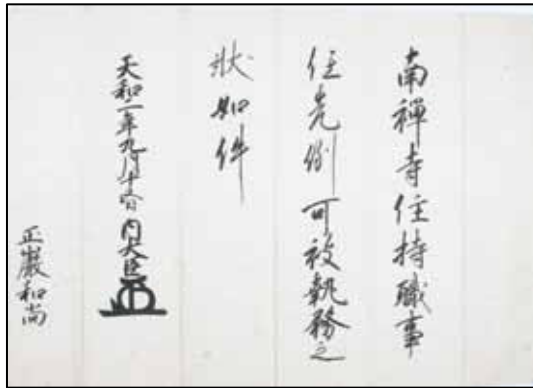 南禅寺住持職事
任先例可被執務之
状如件
天和二年九月十六日 内大臣
正巌和尚